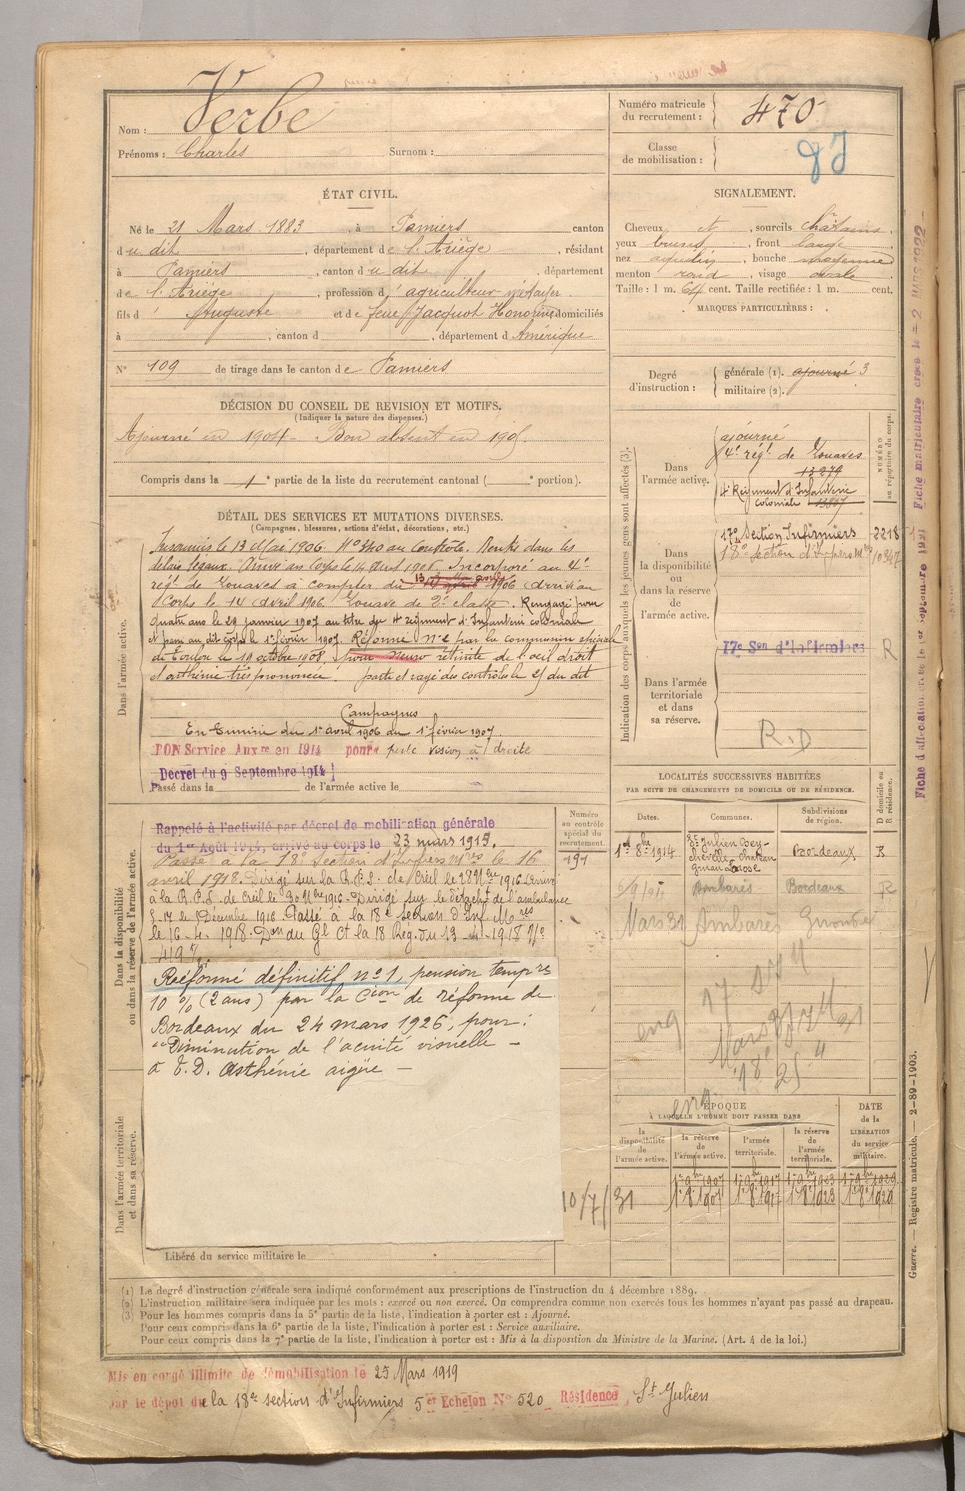 Nom : Verbe
Prénoms : Charles Surnom :
Numéro matricule du recrutement : 470
Classe de mobilisation :
ÉTAT CIVIL.
Né le 21 Mars 1883, à Pamiers canton
du dit, département de l'Ariège, résidant
à Pamiers, canton du dit, département
de l'Ariège, profession d'agriculteur métayer
fils d'Auguste et de feue Jacquot Honorine domiciliés
à , canton d , département d Amérique
N° 109 de tirage dans le canton de Pamiers
SIGNALEMENT.
Cheveux et , sourcils châtains,
yeux bruns, front large
nez aquilin, bouche moyenne
menton rond, visage ovale
Taille : 1 m. 64 cent. Taille rectifiée : 1 m. cent.
MARQUES PARTICULIÈRES :
Degré d'instruction : générale (1). ajourné 3
militaire (2).
DÉCISION DU CONSEIL DE REVISION ET MOTIFS.
(Indiquer la nature des dispenses.)
Ajourné en 1904 - Bon absent en 1905.
Compris dans la 1e partie de la liste du recrutement cantonal ( e portion).
DÉTAIL DES SERVICES ET MUTATIONS DIVERSES.
(Campagnes, blessures, actions d'éclat, décorations, etc.)
Dans l'armée active.
Insoumis le 13 Mai 1906. N° 340 au Contrôle. Rentré dans les
délais légaux. Arrivé au Corps le 14 avril 1906. Incorporé au 4e
rég.t de Zouaves à compter du 13 avril 1906 arrivé au
Corps le 14 avril 1906. Zouave de 2e classe. Rengagé pour
quatre ans le 29 janvier 1907 au titre du 4e régiment d'Infanterie coloniale
et passé au dit corps le 1er février 1907. Réformé n°2 par la commission spéciale
de Toulon le 19 octobre 1908 pour rétinite de l'oeil droit
et asthénie très prononcée. parti et rayé des contrôles le 25 du dit
Campagnes
En Tunisie du 1er avril 1906 au 1er février 1907
BON Service Auxre en 1914 pour perte vision à droite
Décret du 9 Septembre 1914
Passé dans la de l'armée active le
Indication des corps auxquels les jeunes gens sont affectés (3).
NUMÉRO au répertoire du corps.
Dans l'armée active.
ajourné
4e rég.t de Zouaves
13279
4e Régiment d'Infanterie
coloniale
Dans la disponibilité ou dans la réserve de l'armée active.
17e Section Infirmiers 2218
18e section d'Infirmiers Mres
Dans l'armée territoriale et dans sa réserve.
17e Son d'Infirmiers R
R.D
Fiche matriculaire créée le 2 MARS 1922
LOCALITÉS SUCCESSIVES HABITÉES
PAR SUITE DE CHANGEMENTS DE DOMICILE OU DE RÉSIDENCE.
Dates. Communes. Subdivisions de région. D domicile ou R résidence.
St Julien Bey-
chevelle Bordeaux R
Ambarès Bordeaux R
Mars 31 Ambarès Gironde
Dans la disponibilité ou dans la réserve de l'armée active.
Numéro au contrôle spécial du recrutement.
191
Rappelé à l'activité par décret de mobilisation générale
du 1er Août 1914, arrivé au corps le 23 mars 1915.
Passé à la 18e Section d'Infirmiers Mres le 16
avril 1918. Dirigé sur la R.P.S. de Creil le 28 Nbre 1916 Arrivé
à la R.P.S. de Creil le 30 Nbre 1916 - Dirigé sur le détachet de l'ambulance
le 17 Décembre 1916 Passé à la 18e Section d'Inf. Mres
le 16-4-1918. Don du Gl Ct la 18 Reg. du 13-4-1918 N°
4197
Réformé définitif n°1, pension tempre
10 % (2 ans) par la Cion de réforme de
Bordeaux du 24 mars 1926, pour :
"Diminution de l'acuité visuelle -
à E.D. Asthénie aigüe -
Dans l'armée territoriale et dans sa réserve.
ÉPOQUE
À LAQUELLE L'HOMME DOIT PASSER DANS
la disponibilité de l'armée active.
la réserve de l'armée active.
l'armée territoriale.
la réserve de l'armée territoriale.
DATE de la LIBÉRATION du service militaire.
1er 9bre 1907 1er 9bre 1917 1er 9bre 1923 1er 9bre 1929
10/7/31
Libéré du service militaire le
Guerre. — Registre matricule. — 2-89-1903.
(1) Le degré d'instruction générale sera indiqué conformément aux prescriptions de l'instruction du 4 décembre 1889.
(2) L'instruction militaire sera indiquée par les mots : exercé ou non exercé. On comprendra comme non exercés tous les hommes n'ayant pas passé au drapeau.
(3) Pour les hommes compris dans la 5e partie de la liste, l'indication à porter est : Ajourné.
Pour ceux compris dans la 6e partie de la liste, l'indication à porter est : Service auxiliaire.
Pour ceux compris dans la 7e partie de la liste, l'indication à porter est : Mis à la disposition du Ministre de la Marine. (Art. 4 de la loi.)
Mis en congé illimité de démobilisation le 25 Mars 1919
par le dépôt de la 18e section d'Infirmiers 5er Échelon N° 520 Résidence, St Julien